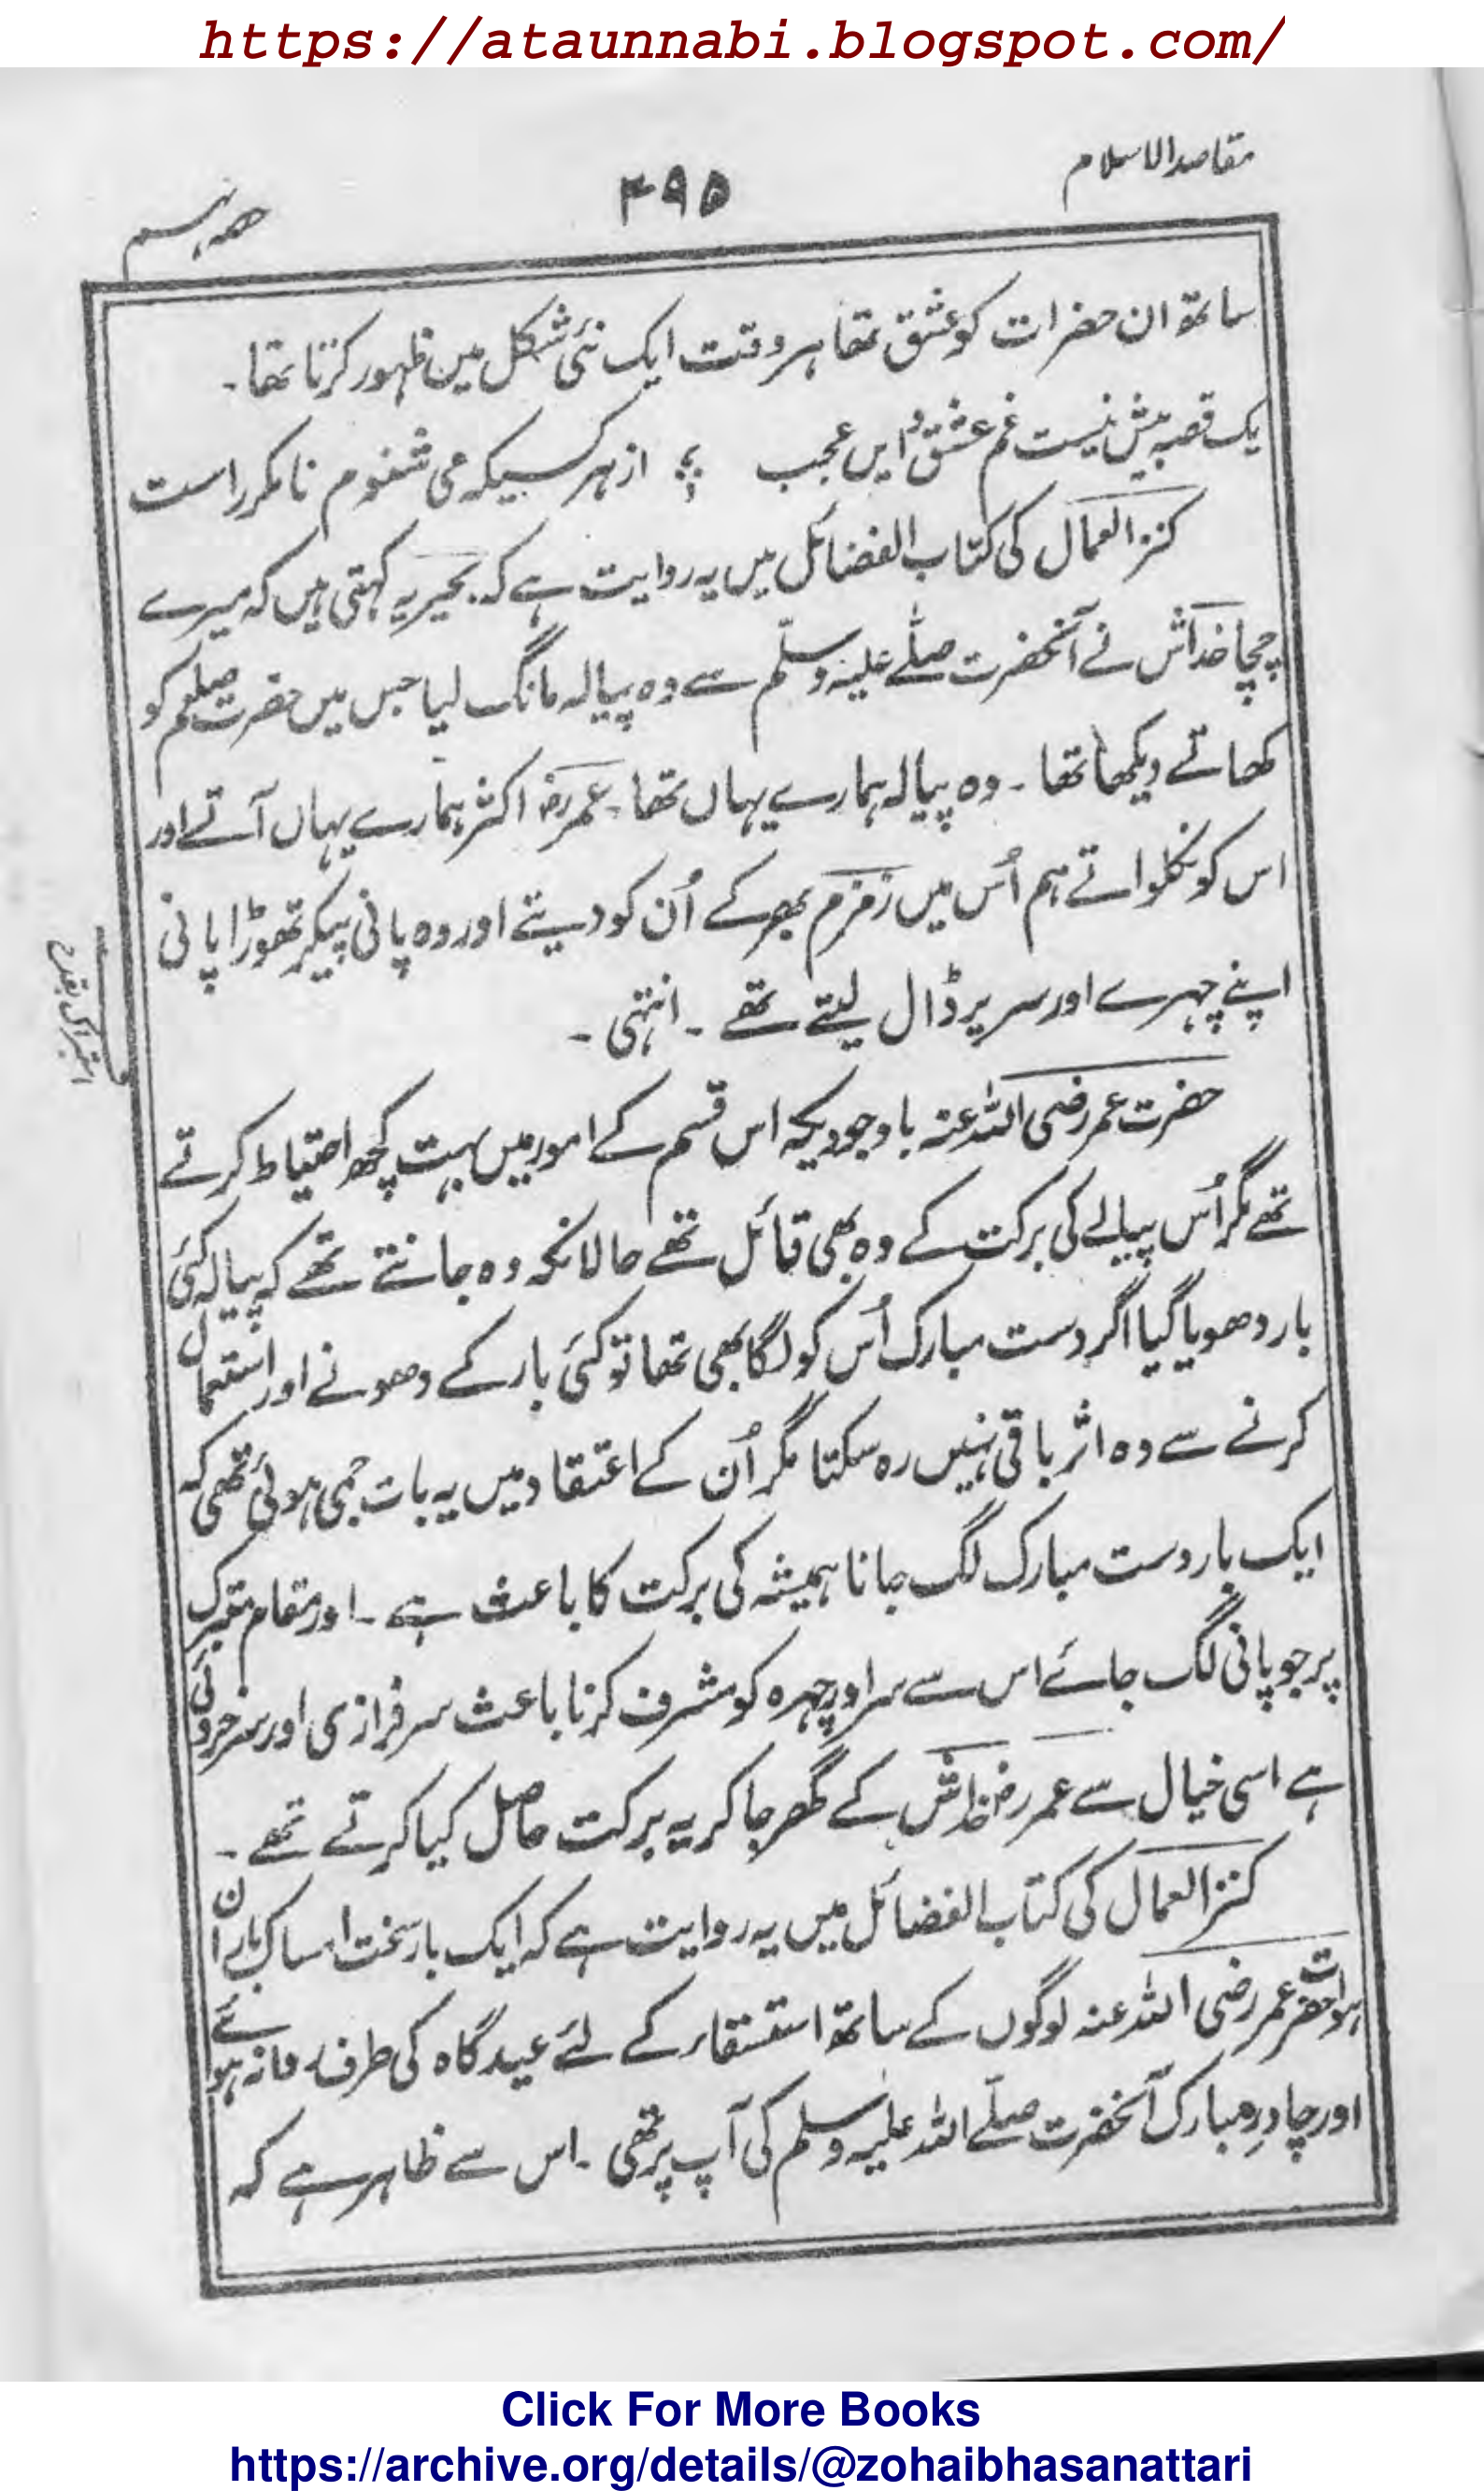 https://ataunnabi.blogspot.com/
مقاصدالاسلام
۳۹۵
حصہ نہم
ساتھ ان حضرات کو عشق تھا ہر وقت ایک نئی شکل میں ظہور کرتا تھا۔
یک قصہ بیش نیست غم عشق و ایں عجب ؛ از ہر کسیکہ می شنوم نا مکرر است
کنزالعمال کی کتاب الفضائل میں یہ روایت ہے کہ بحیریہ کہتی ہیں کہ میرے
چچا خداش نے آنحضرت صلے علیہ وسلم سے وہ پیالہ مانگ لیا جس میں حضرت صلعم کو
کھاتے دیکھا تھا۔ وہ پیالہ ہمارے یہاں تھا۔ عمر رض اکثر ہمارے یہاں آتے اور
اس کو نکلواتے ہم اُس میں زمزم بھر کے اُن کو دیتے اور وہ پانی پیکر تھوڑا پانی
اپنے چہرے اور سر پر ڈال لیتے تھے۔ انتہی۔
حضرت عمر رضی اللہ عنہ باوجودیکہ اس قسم کے امور میں بہت کچھ احتیاط کرتے
تھے مگر اُس پیالے کی برکت کے وہ بھی قائل تھے حالانکہ وہ جانتے تھے کہ پیالہ کئی
بار دھویا گیا اگر دست مبارک اُس کو لگا بھی تھا تو کئی بار کے دھونے اور استعمال
کرنے سے وہ اثر باقی نہیں رہ سکتا مگر اُن کے اعتقاد میں یہ بات جمی ہوئی تھی کہ
ایک بار دست مبارک لگ جانا ہمیشہ کی برکت کا باعث ہے۔ اور مقام متبرک
پر جو پانی لگ جائے اس سے سر اور چہرہ کو مشرف کرنا باعث سرفرازی اور سرخروئی
ہے اسی خیال سے عمر رض خداش کے گھر جا کر یہ برکت حاصل کیا کرتے تھے۔
کنزالعمال کی کتاب الفضائل میں یہ روایت ہے کہ ایک بار سخت امساک باران
ہوا حضرت عمر رضی اللہ عنہ لوگوں کے ساتھ استسقاء کے لئے عیدگاہ کی طرف روانہ ہوئے
اور چادر مبارک آنحضرت صلے اللہ علیہ وسلم کی آپ پر تھی۔ اس سے ظاہر ہے کہ
Click For More Books
https://archive.org/details/@zohaibhasanattari